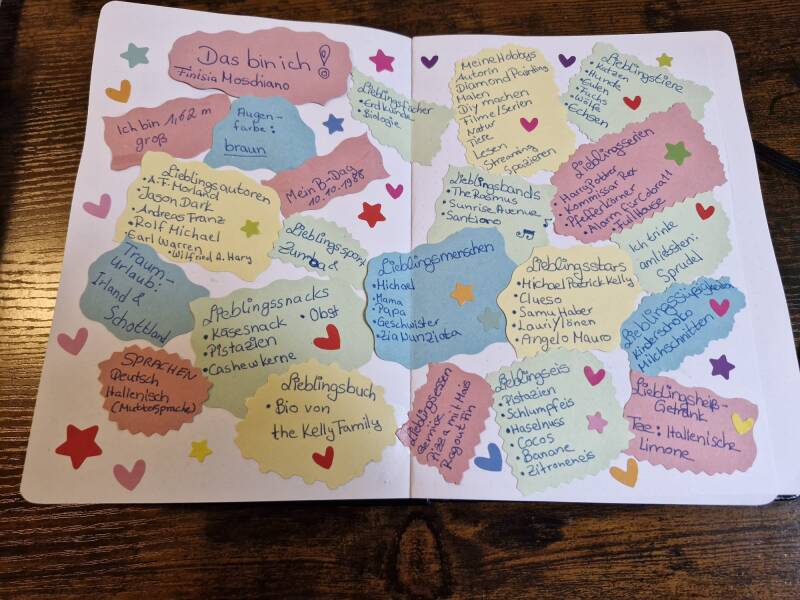 Das bin ich!
Finisia Moschiano
Ich bin 1,62 m
groß
Augen-
farbe:
braun
Lieblingsfächer
• Erdkunde
• Biologie
Mein B-Dag
10.10.1986
Lieblingsautoren
• A.F. Morland
• Jason Dark
• Andreas Franz
• Rolf Michael
• Earl Warren
• Wilfried A. Hary
Lieblingssport
Zumba &
Traum-
urlaub:
Irland &
Schottland
Lieblingssnacks
• Käsesnack • Obst
• Pistazien
• Cashewkerne
SPRACHEN
Deutsch
Italienisch
(Muttersprache)
Lieblingsbuch
• Bio von
the Kelly Family
Meine Hobbys
Autorin
Diamond Painting
Malen
Diy machen
Filme/Serien
Natur
Tiere
Lesen
Streaming
Spazieren
Lieblingstiere
• Katzen
• Hunde
• Eulen
• Fuchs
• Wölfe
• Echsen
Lieblingsserien
• Harry Potter
• Kommissar Rex
• Pfefferkörner
• Alarm für Cobra 11
• Full House
Lieblingsbands
• The Rasmus
• Sunrise Avenue
• Santiano
Ich trinke
am liebsten:
Sprudel
Lieblingsmenschen
• Michael
• Mama
• Papa
• Geschwister
• Zia Nunziata
Lieblingsstars
• Michael Patrick Kelly
• Clueso
• Samu Haber
• Lauri Ylönen
• Angelo Mauro
Lieblingssüßigkeiten
Kinderschoko
Milchschnitten
Lieblingsessen
Gemüse
Pizza mit Mais
Ragout Fin
Lieblingseis
Pistazien
• Schlumpfeis
• Haselnuss
• Cocos
• Banane
• Zitroneneis
Lieblingsheiß-
Getränk
Tee: Italienische
Limone